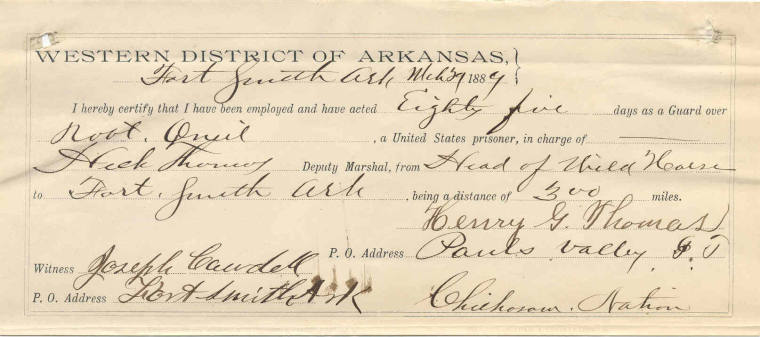 WESTERN DISTRICT OF ARKANSAS, }
Fort Smith Ark Mch 27 1889 }
I hereby certify that I have been employed and have acted Eighty five days as a Guard over
Robt. Oneil, a United States prisoner, in charge of
Heck Thomas Deputy Marshal, from Head of Wild Horse
to Fort. Smith Ark, being a distance of 300 miles.
Henry G. Thomas
P. O. Address Pauls Valley I. T
Witness Joseph Caudell
P. O. Address Fort Smith Ark Chickasaw. Nation